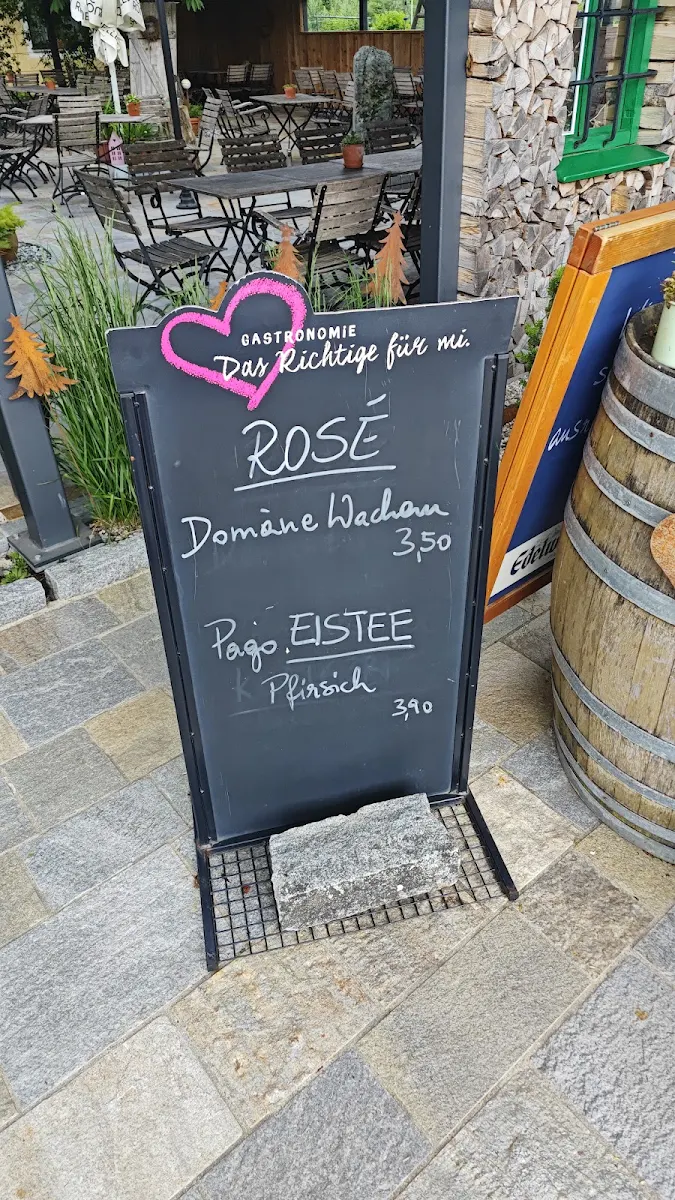 GASTRONOMIE
Das Richtige für mi.
ROSÉ
Domäne Wachau
3,50
Pago. EISTEE
Pfirsich
3,90